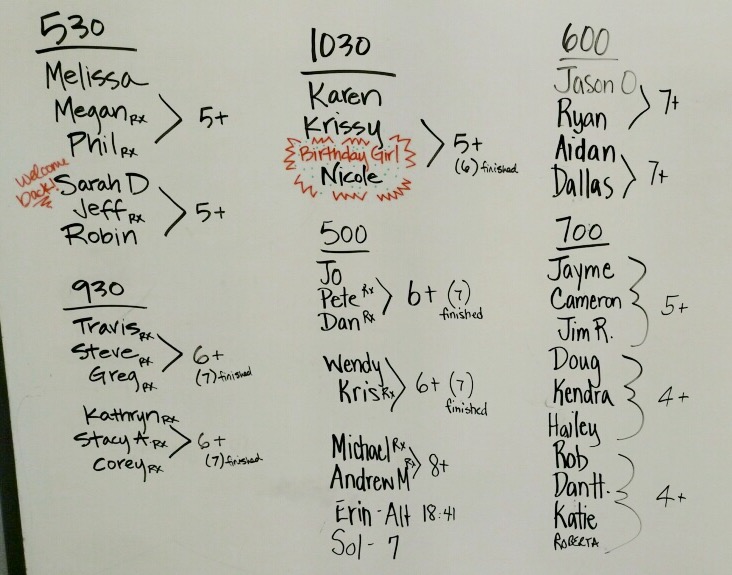 530
Melissa
Megan Rx
Phil Rx
5+
Welcome
back!
Sarah D
Jeff Rx
Robin
5+
930
Travis Rx
Steve Rx
Greg Rx
6+
(7) finished
Kathryn Rx
Stacy A. Rx
Corey Rx
6+
(7) finished
1030
Karen
Krissy
Birthday Girl
Nicole
5+
(6) finished
500
Jo
Pete Rx
Dan Rx
6+ (7)
finished
Wendy
Kris Rx
6+ (7)
finished
Michael Rx
Andrew M Rx
8+
Erin - Alt 18:41
Sol - 7
600
Jason O
Ryan
7+
Aidan
Dallas
7+
700
Jayme
Cameron
Jim R.
5+
Doug
Kendra
Hailey
4+
Rob
Dan H.
Katie
ROBERTA
4+